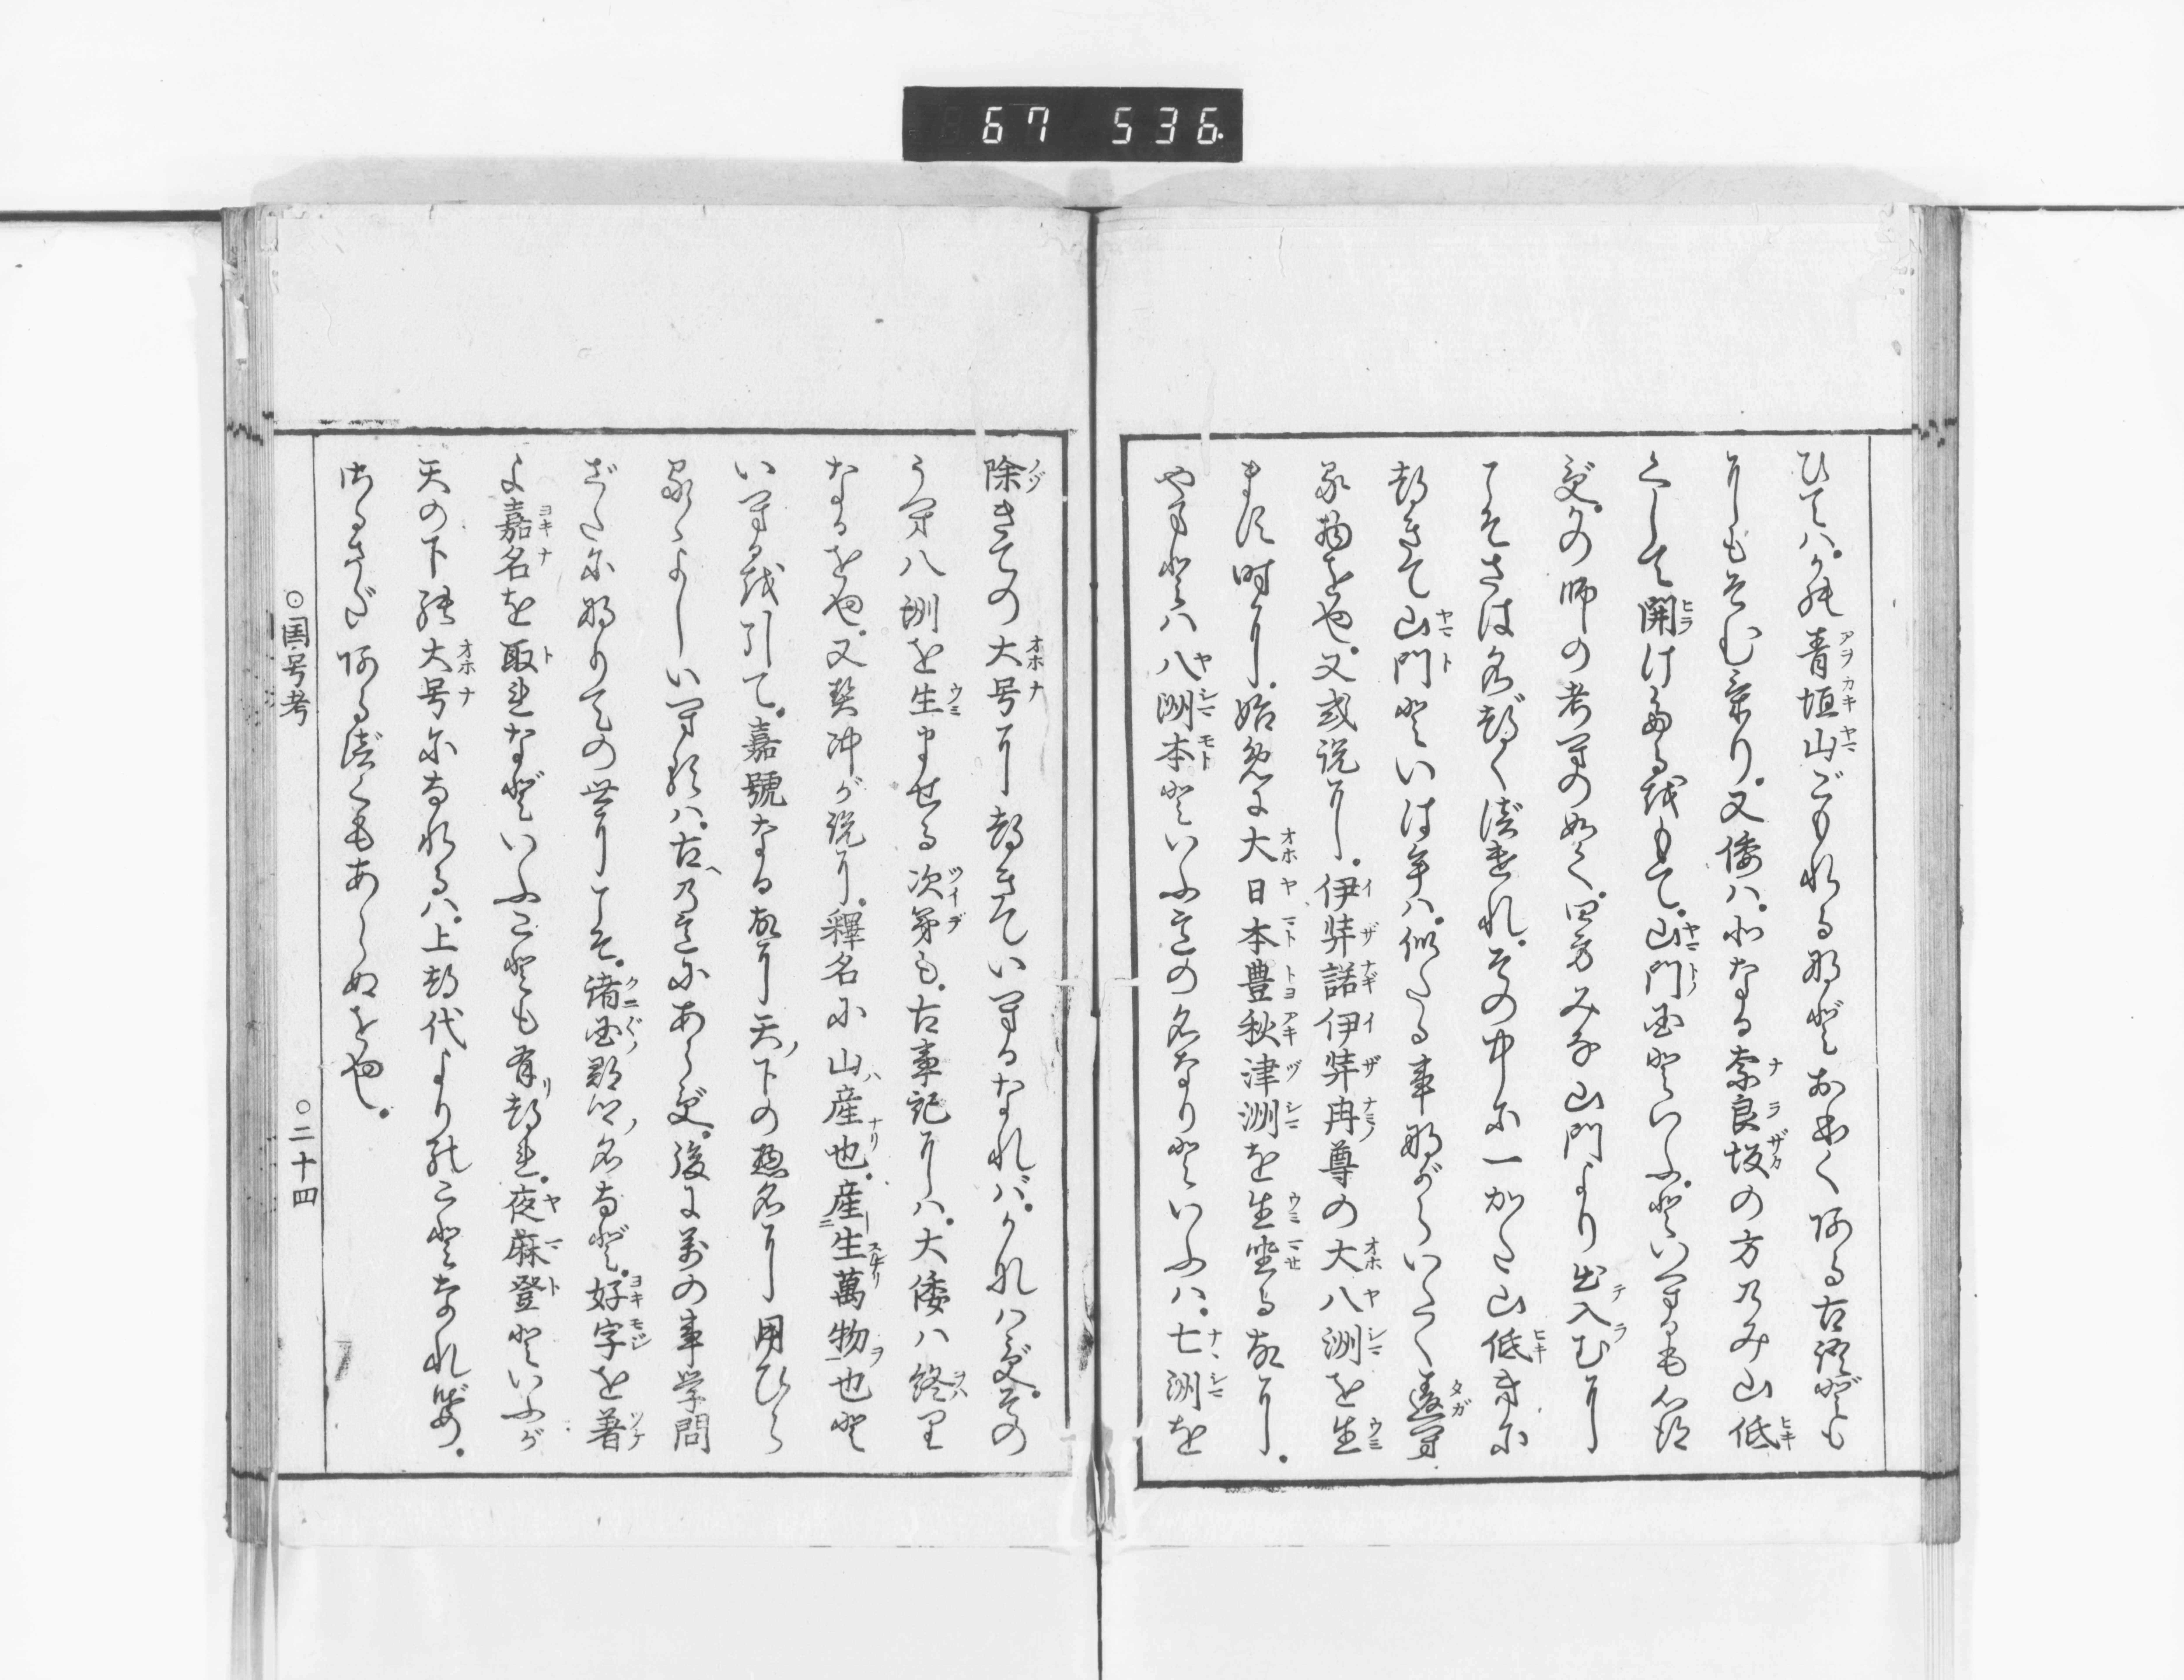 ひてハ。かの青垣山ごもれるなどおほくある古語ども
にもそむけり。又倭ハ。北なる奈良坂の方のみ山低
くして開けたるをもて。山門国といふ。といへるも心得
ず。かの師の考への如く。四方みな山門より出入むに
こそさは名づくべけれ。その中に一かた山低きに
つきて山門といはむハ。似たる事ながらいたく違へ
る物をや。又或説に。伊弉諾伊弉冉尊の大八洲を生
ます時に。始めに大日本豊秋津洲を生坐る故に。
やまとハ八洲本といふ意の名なりといふハ。七洲を
除きての大号につきていへるなれバ。かなハず。その
うへ八洲を生ませる次第も。古事記にハ。大倭ハ終り
なるをや。又契沖が説に。釋名に山産也。産生萬物也と
いへるを引て。嘉號なる故に天下の惣名に用ひら
るゝよしいへれハ。古の意にあらず。後に万の事学問
ざたになりての世にこそ。諸国郡郷名など。好字を著
よ嘉名を取れなどいふことも有つれ。夜麻登といふが
天の下の大号になれるハ。上つ代よりのことなれバ。
さるさだあるべくもあらぬをや。
○国号考
○二十四
67 536